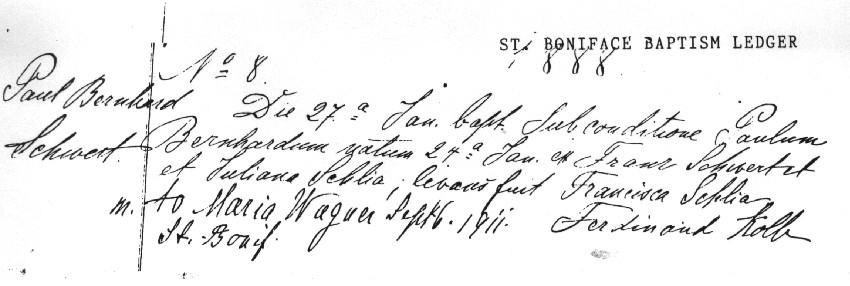 ST. BONIFACE BAPTISM LEDGER
1888
No 8.
Paul Bernhard
Schwert.
Die 27.a Jan. bapt. sub conditione Paulum
Bernhardum natum 24.a Jan. ex Franz Schwert et
et Juliana Schlia; levans fuit Francisca Schlia
m. to Maria Wagner Sept 6. 1911. Ferdinand Kolb
St. Bonif.